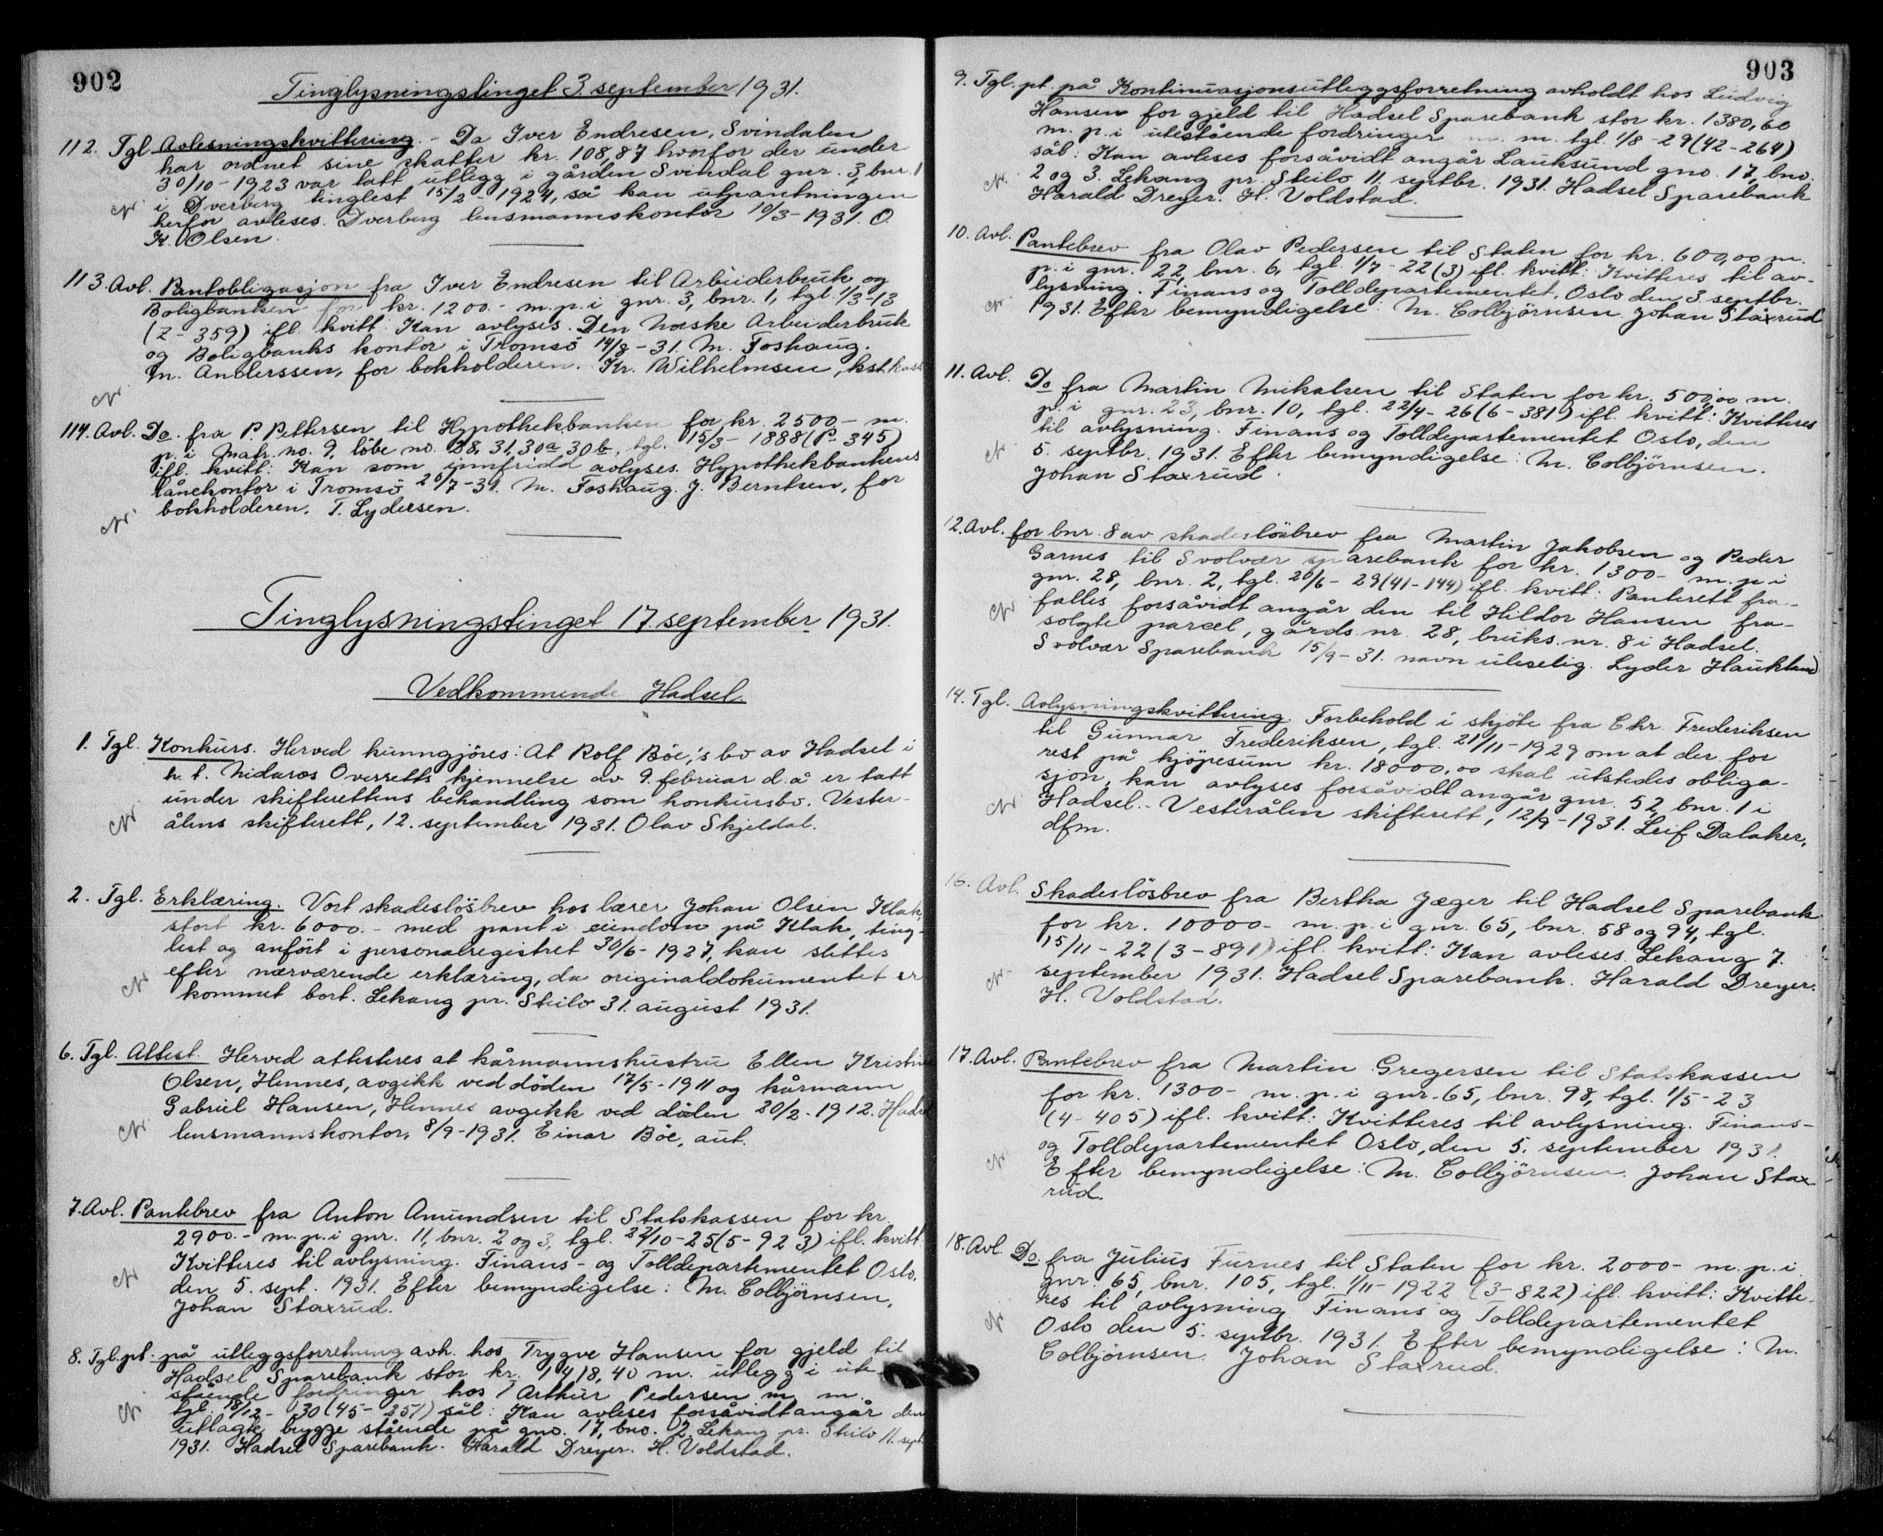 902
Tinglysningstinget 3. september 1931.
112. Tgl. Avlesningskvittering. - Da Iver Endresen, Svindalen
har ordnet sine skatter kr. 108,87 hvorfor der under
30/10-1923 var tatt utlegg i gården Svindal gnr. 3, bnr. 1
i Dverberg tinglest 15/2-1924, så kan utpantningen
herfor avleses. Dverberg lensmannskontor 10/3-1931. O.
K. Olsen.
113. Avl. Pantobligasjon fra Iver Endresen til Arbeiderbruk og
Boligbanken for kr. 1200.- m. p. i gnr. 3, bnr. 1, tgl. 1/3-13
(Z-359) ifl. kvitt: Kan avlyses. Den Norske Arbeiderbruk
og Boligbanks kontor i Tromsö 14/8-31. M. Foshaug.
M. Anderssen, for bokholderen. Kr. Wilhelmsen, kst. kass
114. Avl. Do. fra P. Pettersen til Hypothekbanken for kr. 2500- m.
p. i Matr. no. 9, löbe no. 28, 31, 30a, 30b, tgl. 15/3-1888 (P. 345)
ifl. kvitt: Kan som innfridd avlyses. Hypothekbankens
lånekontor i Tromsö 20/7-31. M. Foshaug. J. Berntsen, for
bokholderen. T. Lydersen.
Tinglysningstinget 17. september 1931.
Vedkommende Hadsel.
1. Tgl. Konkurs. Herved kunngjöres: At Rolf Böe,'s bo av Hadsel i
h. t. Nidaros Overretts kjennelse av 9. februar d.å. er tatt
under skifterettens behandling som konkursbo. Vester-
ålens skifterett, 12. september 1931. Olav Skjeldal.
2. Tgl. Erklæring. Vort skadeslösbrev hos lærer Johan Olsen Klak,
stort kr. 6000.- med pant i eiendom på Klak, ting-
lest og anfört i personalregistret 30/6-1927, kan slettes
efter nærværende erklæring, da originaldokumentet er
kommet bort. Lekang pr. Stilo 31. august 1931.
6. Tgl. Attest. Herved attesteres at kårmannshustru Ellen Kristine
Olsen, Hennes, avgikk ved döden 17/5-1911 og kårmann
Gabriel Hansen, Hennes avgikk ved döden 20/2-1912. Hadsel
lensmannskontor, 8/9-1931. Einar Böe, aut.
7. Avl. Pantebrev fra Anton Amundsen til Statskassen for kr.
2900.- m. p. i gnr. 11, bnr. 2 og 3, tgl. 22/10-25 (5-923) ifl. kvitt:
Kvitteres til avlysning. Finans- og Tolldepartementet Oslo,
den 5. sept. 1931. Efter bemyndigelse: M. Colbjörnsen,
Johan Staxrud.
8. Tgl. pt. på utleggsforretning avh. hos Trygve Hansen for gjeld til
Hadsel Sparebank stor kr. 1418,40 m. utlegg i ute-
stående fordringer hos Arthur Pedersen m. m.
tgl. 18/12-30 (45-351) sål: Kan avleses forsåvidt angår den
utlagte brygge stående på gno. 17, bno. 2. Lekang pr. Stilo 11. sept.
1931. Hadsel Sparebank. Harald Dreyer. H. Voldstad.
903
9. Tgl. pt. på Kontinuasjonsutleggsforretning avholdt hos Ludvig
Hansen for gjeld til Hadsel Sparebank stor kr. 1380,60
m. p. i utestående fordringer m. m. tgl. 1/8-29 (42-264)
sål: Kan avleses forsåvidt angår Lauksund gno. 17, bno.
2 og 3. Lekang pr. Stilo 11. septbr. 1931. Hadsel Sparebank
Harald Dreyer. H. Voldstad.
10. Avl. Pantebrev fra Olav Pedersen til Staten for kr. 600,00 m.
p. i gnr. 22, bnr. 6, tgl. 1/7-22 (3) ifl. kvitt: Kvitteres til av-
lysning. Finans og Tolldepartementet, Oslo den 3. septbr.
1931. Efter bemyndigelse: M. Colbjörnsen. Johan Staxrud
11. Avl. Do fra Martin Mikalsen til Staten for kr. 500,00 m.
p. i gnr. 23, bnr. 10, tgl. 22/4-26 (6-381) ifl. kvitt: Kvitteres
til avlysning. Finans og Tolldepartementet Oslo, den
5. septbr. 1931. Efter bemyndigelse: M. Colbjörnsen.
Johan Staxrud.
12. Avl. for bnr. 8 av skadeslösbrev fra Martin Jakobsen og Peder
Garnes til Svolvær sparebank for kr. 1300- m. p. i
gnr. 28, bnr. 2, tgl. 20/6-29 (41-144) ifl. kvitt: Panterett fra-
falles forsåvidt angår den til Hildor Hansen fra-
solgte parcel, gårds nr. 28, bruks nr. 8 i Hadsel.
Svolvær Sparebank 15/9-31. navn uleselig. Lyder Haukland
14. Tgl. Avlysningskvittering Forbehold i skjöte fra Chr. Frederiksen
til Gunnar Frederiksen, tgl. 21/11-1929 om at der for
rest på kjöpesum kr. 18000,00 skal utstedes obliga-
sjon, kan avlyses forsåvidt angår gnr. 52, bnr. 1 i
Hadsel.- Vesterålen skifterett, 12/9-1931. Leif Dalaker,
dfm.
16. Avl. Skadeslösbrev fra Bertha Jæger til Hadsel Sparebank
for kr. 10000- m. p. i gnr. 65, bnr. 58 og 94, tgl.
15/11-22 (3-891) ifl. kvitt: Kan avleses. Lekang 7.
september 1931. Hadsel Sparebank. Harald Dreyer.
H. Voldstad.
17. Avl. Pantebrev fra Martin Gregersen til Statskassen
for kr. 1300- m. p. i gnr. 65, bnr. 98, tgl. 1/5-23
(4-405) ifl. kvitt: Kvitteres til avlysning. Finans-
og Tolldepartementet Oslo, den 5. september 1931.
Efter bemyndigelse: M. Colbjörnsen. Johan Stax-
rud.
18. Avl. Do fra Julius Furnes til Staten for kr. 2000- m. p. i.
gnr. 65, bnr. 105, tgl. 1/11-1922 (3-822) ifl. kvitt: Kvitte-
res til avlysning Finans og Tolldepartementet
Oslo den 5. septbr. 1931. Efter bemyndigelse: M.
Colbjörnsen. Johan Staxrud.